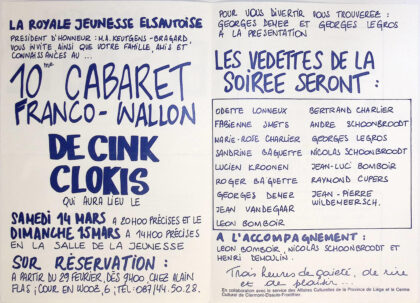 LA ROYALE JEUNESSE ELSAUTOISE
PRESIDENT D'HONNEUR : M.A. KEUTGENS-BRAGARD,
VOUS INVITE AINSI QUE VOTRE FAMILLE, AMIS ET
CONNAISSANCES AU ...
10me CABARET
FRANCO-WALLON
DE CINK
CLOKIS
QUI AURA LIEU LE
SAMEDI 14 MARS A 20H00 PRÉCISES ET LE
DIMANCHE 15 MARS A 14H00 PRÉCISES
EN LA SALLE DE LA JEUNESSE
SUR RÉSERVATION :
A PARTIR DU 29 FEVRIER, DÈS 9H00, CHEZ ALAIN
FLAS ; COUR EN WOOZ, 6 ; TEL : 087/44.50.28.
POUR VOUS DIVERTIR VOUS TROUVEREZ :
GEORGES DENEZ ET GEORGES LEGROS
A LA PRÉSENTATION
LES VEDETTES DE LA
SOIREE SERONT :
ODETTE LONNEUX BERTRAND CHARLIER
FABIENNE SMETS ANDRE SCHOONBROODT
MARIE-ROSE CHARLIER GEORGES LEGROS
SANDRINE BAGUETTE NICOLAS SCHOONBROODT
LUCIEN KROONEN JEAN-LUC BOMBOIR
ROGER BAGUETTE RAYMOND CUPERS
GEORGES DENEZ JEAN-PIERRE
JEAN VANDEGAAR WILDEMEERSCH.
LEON BOMBOIR
A L'ACCOMPAGNEMENT :
LEON BOMBOIR, NICOLAS SCHOONBROODT ET
HENRI DEMOULIN.
Trois heures de gaieté, de rire
et de plaisir...
En collaboration avec le service des Affaires Culturelles de la Province de Liège et le Centre
Culturel de Clermont-Elsaute-Froidthier